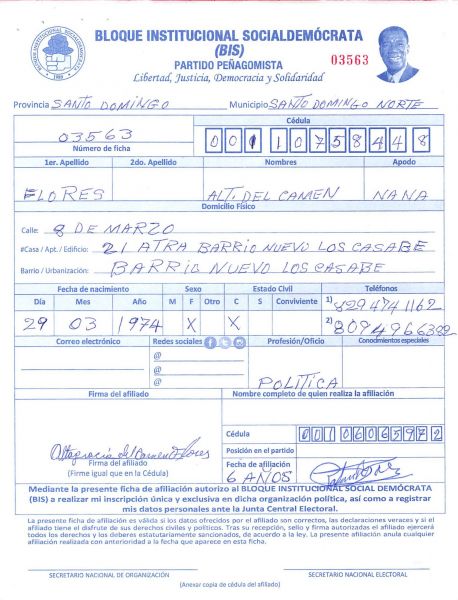 BLOQUE INSTITUCIONAL SOCIALDEMÓCRATA
(BIS)
PARTIDO PEÑAGOMISTA
03563
Libertad, Justicia, Democracia y Solidaridad
Provincia SANTO DOMINGO Municipio SANTO DOMINGO NORTE
Cédula
03563
Número de ficha
1er. Apellido 2do. Apellido Nombres Apodo
FLORES ALT. DEL CAMEN NANA
Domicilio Físico
Calle: 8 DE MARZO
#Casa / Apt. / Edificio: 21 ATRA BARRIO NUEVO LOS CASABE
Barrio / Urbanización: BARRIO NUEVO LOS CASABE
Fecha de nacimiento Sexo Estado Civil Teléfonos
Día Mes Año M F Otro C S Conviviente 1) 829 474 1162
29 03 1974 X X 2) 809 496 6382
Correo electrónico Redes sociales Profesión/Oficio Conocimientos especiales
@
@
@
POLITICA
Firma del afiliado Nombre completo de quien realiza la afiliación
Cédula 001 0606397 2
Posición en el partido
Altagracia del Carmen Flores
Firma del afiliado
(Firme igual que en la Cédula)
Fecha de afiliación
6 AÑOS
Mediante la presente ficha de afiliación autorizo al BLOQUE INSTITUCIONAL SOCIAL DEMÓCRATA
(BIS) a realizar mi inscripción única y exclusiva en dicha organización política, así como a registrar
mis datos personales ante la Junta Central Electoral.
La presente ficha de afiliación es válida si los datos ofrecidos por el afiliado son correctos, las declaraciones veraces y si el
afiliado tiene el disfrute de sus derechos civiles y políticos. Tras su recepción, sello y firma autorizadas el afiliado ejercerá
todos los derechos y los deberes estatutariamente sancionados, de acuerdo a la ley. La presente afiliación anula cualquier
afiliación realizada con anterioridad a la fecha que aparece en esta ficha.
SECRETARIO NACIONAL DE ORGANIZACIÓN SECRETARIO NACIONAL ELECTORAL
(Anexar copia de cédula del afiliado)